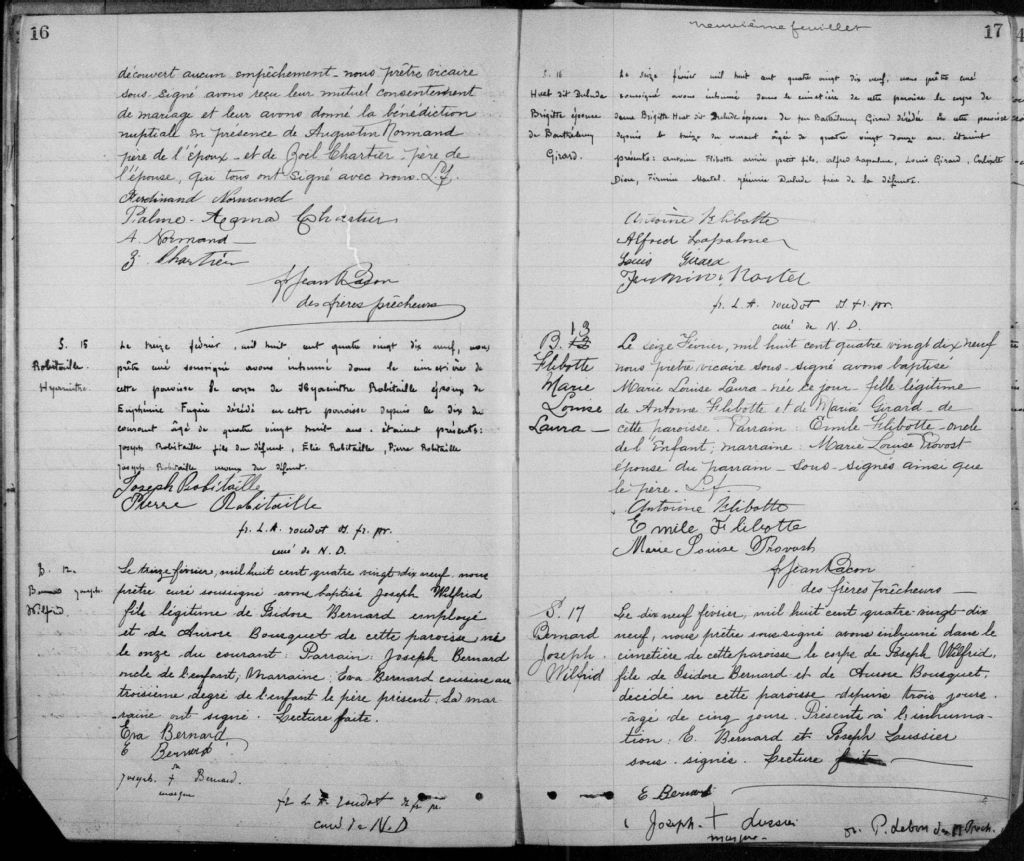 16
découvert aucun empêchement - nous prêtre vicaire
sous-signé avons reçu leur mutuel consentement
de mariage et leur avons donné la bénédiction
nuptiale en présence de Augustin Normand
père de l'époux - et de Zoël Chartier - père de
l'épouse, qui tous ont signé avec nous. L.f.
Ferdinand Normand
Palme-Chartier
A. Normand
Z. Chartier
fr Jean Bacon
des frères prêcheurs
S. 15
Robitaille
Hyacinthe
Le treize février, mil huit cent quatre vingt dix neuf, nous
prêtre curé soussigné avons inhumé dans le cimetière de
cette paroisse le corps de Hyacinthe Robitaille époux de
Euphémie décédé en cette paroisse depuis le dix du
courant âgé de quatre vingt huit ans. étaient présents:
Joseph Robitaille fils du défunt, Élie Robitaille, Pierre Robitaille
Joseph Robitaille neveux du défunt.
Joseph Robitaille
Pierre Robitaille
fr. L. A. roudot fr. pr.
curé de N. D.
B. 12.
Bernard Joseph
Wilfrid
Le treize février, mil huit cent quatre vingt dix neuf nous
prêtre curé soussigné avons baptisé Joseph Wilfrid
fils légitime de Isidore Bernard employé
et de Aurore Bousquet de cette paroisse né
le onze du courant. Parrain: Joseph Bernard
oncle de l'enfant, Marraine: Eva Bernard cousine au
troisième degré de l'enfant le père présent. La mar
raine ont signé. Lecture faite.
Eva Bernard
E Bernard
sa
Joseph + Bernard.
marque
fr L. A. roudot fr pr.
curé de N. D
neuvième feuillet
17
S. 16
Huet dit Dulude
Brigitte épouse
de Barthélemy
Girard.
Le seize février mil huit cent quatre vingt dix neuf, nous prêtre curé
soussigné avons inhumé dans le cimetière de cette paroisse le corps de
dame Brigitte Huet dit Dulude épouse de feu Barthélemy Girard décédée en cette paroisse
depuis le treize du courant âgée de quatre vingt douze ans. étaient
présents: Antoine Flibotte arrière petit fils, Alfred Lapalme, Louis Girard, Calixte
Dion, Firmin Martel. Jérémie Dulude frère de la défunte.
Antoine Flibotte
Alfred Lapalme
Louis Girard
Firmin Martel
fr. L. A. roudot fr. pr.
curé de N. D.
13
B. 12
Flibotte
Marie
Louise
Laura
Le seize Février, mil huit cent quatre vingt dix neuf
nous prêtre vicaire sous-signé avons baptisé
Marie Louise Laura - née ce jour - fille légitime
de Antoine Flibotte et de Maria Girard - de
cette paroisse. Parrain: Emile Flibotte - oncle
de l'Enfant; marraine: Marie Louise Provost
épouse du parrain - sous-signés ainsi que
le père. L.f.
Antoine Flibotte
Emile Flibotte
Marie Louise Provost
fr Jean Bacon
des frères prêcheurs
S. 17
Bernard
Joseph
Wilfrid
Le dix neuf février, mil huit cent quatre-vingt dix
neuf, nous prêtre soussigné avons inhumé dans le
cimetière de cette paroisse le corps de Joseph Wilfrid,
fils de Isidore Bernard et de Aurore Bousquet,
décédé en cette paroisse depuis trois jours.
âgé de cinq jours. Présents à l'inhuma-
tion: E. Bernard et Joseph Lussier
sous-signés. Lecture fait
E Bernard
Joseph + Lussier
marque